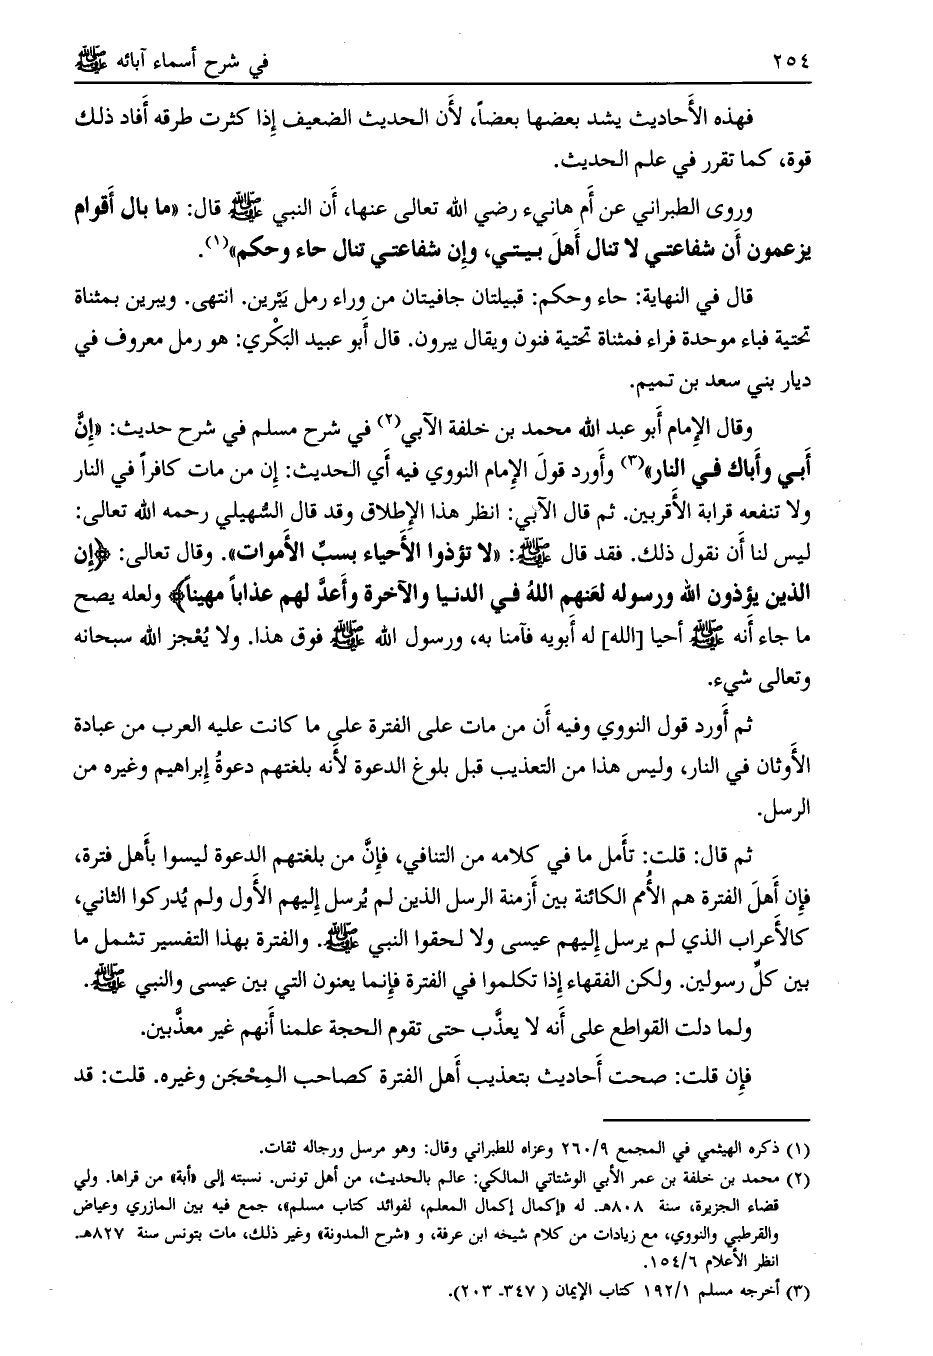 ٢٥٤ في شرح أسماء آبائه ﷺ
فهذه الأَحاديث يشد بعضها بعضاً، لأَن الحديث الضعيف إِذا كثرت طرقه أَفاد ذلك
قوة، كما تقرر في علم الحديث.
وروى الطبراني عن أُم هانيء رضي الله تعالى عنها، أَن النبي ﷺ قال: «ما بال أَقوام
يزعمون أَن شفاعتي لا تنال أَهلَ بيتي، وإِن شفاعتي تنال حاء وحكم»(١).
قال في النهاية: حاء وحكم: قبيلتان جافيتان من وراء رمل يَبْرين. انتهى. ويبرين بمثناة
تحتية فباء موحدة فراء فمثناة تحتية فنون ويقال يبرون. قال أَبو عبيد البَكْري: هو رمل معروف في
ديار بني سعد بن تميم.
وقال الإِمام أَبو عبد الله محمد بن خلفة الآبي(٢) في شرح مسلم في شرح حديث: «إِنَّ
أَبي وأَباك في النار»(٣) وأَورد قولَ الإِمام النووي فيه أَي الحديث: إن من مات كافراً في النار
ولا تنفعه قرابة الأَقربين. ثم قال الآبي: انظر هذا الإِطلاق وقد قال السُّهيلي رحمه الله تعالى:
ليس لنا أَن نقول ذلك. فقد قال ﷺ: «لا تؤذوا الأَحياء بسبِّ الأَموات». وقال تعالى: ﴿إِن
الذين يؤذون الله ورسوله لعَنهم اللهُ في الدنيا والآخرة وأَعدَّ لهم عذاباً مهيناً﴾ ولعله يصح
ما جاء أَنه ﷺ أحيا [الله] له أَبويه فآمنا به، ورسول الله ﷺ فوق هذا. ولا يُعْجز الله سبحانه
وتعالى شيء.
ثم أَورد قول النووي وفيه أَن من مات على الفترة على ما كانت عليه العرب من عبادة
الأَوثان في النار، وليس هذا من التعذيب قبل بلوغ الدعوة لأَنه بلغتهم دعوةُ إِبراهيم وغيره من
الرسل.
ثم قال: قلت: تأَمل ما في كلامه من التنافي، فإِنَّ من بلغتهم الدعوة ليسوا بأَهل فترة،
فإِن أَهلَ الفترة هم الأُمم الكائنة بين أَزمنة الرسل الذين لم يُرسل إِليهم الأَول ولم يُدركوا الثاني،
كالأَعراب الذي لم يرسل إِليهم عيسى ولا لحقوا النبي ﷺ. والفترة بهذا التفسير تشمل ما
بين كلِّ رسولين. ولكن الفقهاء إِذا تكلموا في الفترة فإِنما يعنون التي بين عيسى والنبي ﷺ.
ولما دلت القواطع على أَنه لا يعذَّب حتى تقوم الحجة علمنا أَنهم غير معذَّبين.
فإِن قلت: صحت أَحاديث بتعذيب أَهل الفترة كصاحب المِحْجَن وغيره. قلت: قد
(١) ذكره الهيثمي في المجمع ٢٦٠/٩ وعزاه للطبراني وقال: وهو مرسل ورجاله ثقات.
(٢) محمد بن خلفة بن عمر الأبي الوشتاتي المالكي: عالم بالحديث، من أهل تونس. نسبته إلى «أبة» من قراها. ولي
قضاء الجزيرة، سنة ٨٠٨هـ. له «إكمال إكمال المعلم، لفوائد كتاب مسلم»، جمع فيه بين المازري وعياض
والقرطبي والنووي، مع زيادات من كلام شيخه ابن عرفة، و «شرح المدونة» وغير ذلك، مات بتونس سنة ٨٢٧هـ.
انظر الأعلام ١٥٤/٦.
(٣) أخرجه مسلم ١٩٢/١ كتاب الإيمان (٣٤٧- ٢٠٣).